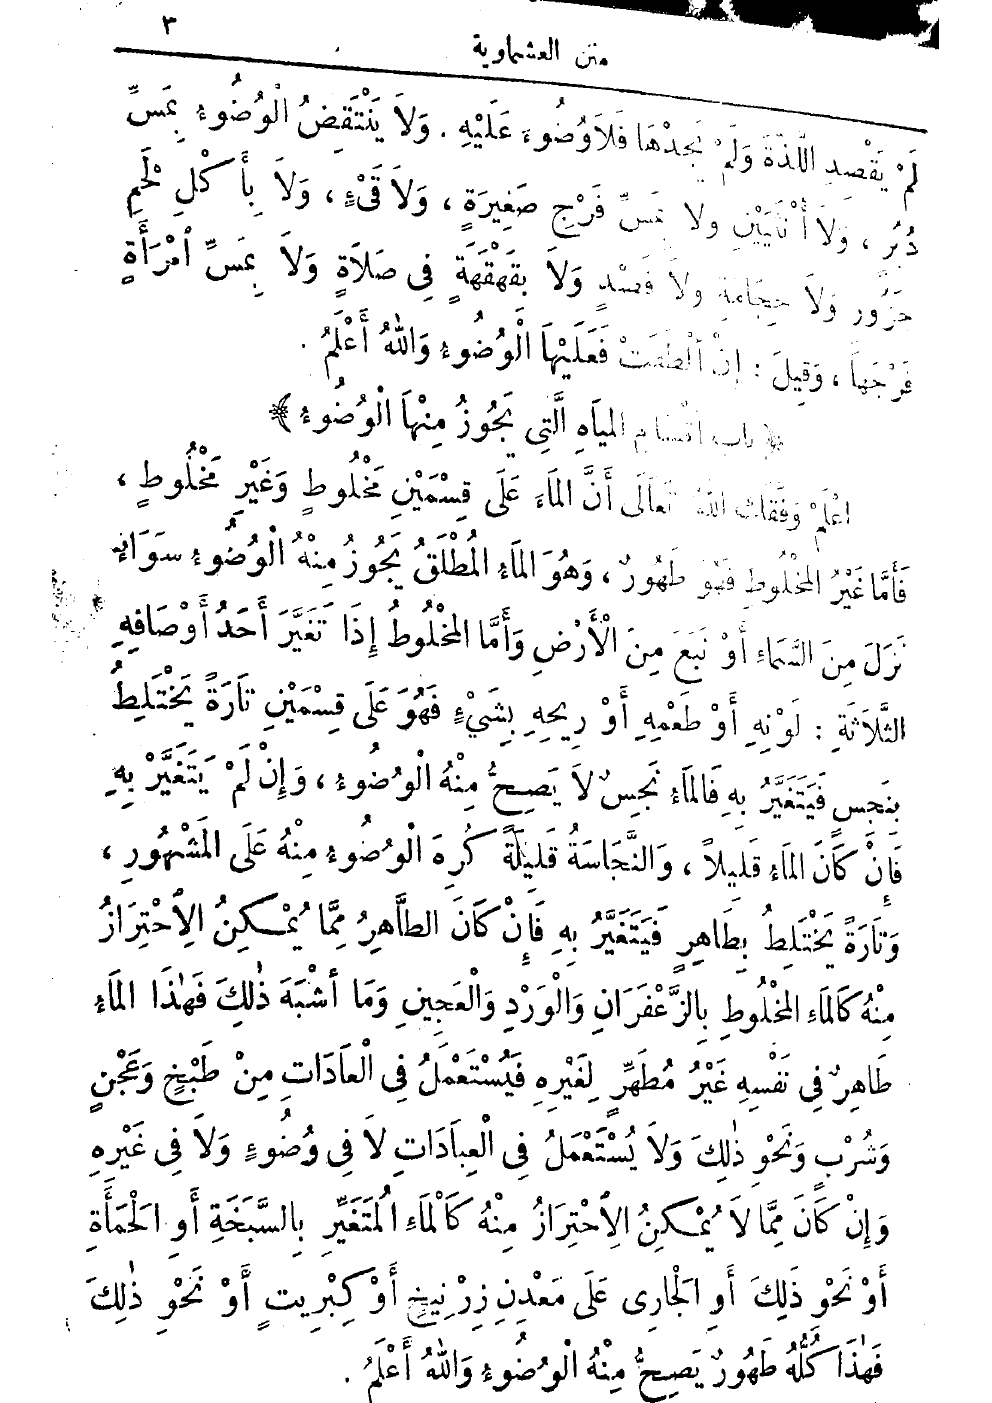 متن العشماوية
٣
لَمْ يَقْصِدِ اللَّذَّةَ وَلَمْ يَجِدْهَا فَلاَ وُضُوءَ عَلَيْهِ . وَلاَ يَنْتَقِضُ الْوُضُوءُ بِمَسِّ
دُبُرٍ ، وَلاَ أُنْثَيَيْنِ وَلا بِمَسِّ فَرْجِ صَغِيرَةٍ ، وَلاَ قَيْءٍ ، وَلاَ بِأَكْلِ لَحْمِ
جَزُورٍ وَلاَ حِجَامَةٍ وَلاَ فَصْدٍ وَلاَ بِقَهْقَهَةٍ فِى صَلاَةٍ وَلاَ بِمَسِّ ٱمْرَأَةٍ
فَرْجَهَا ، وَقِيلَ : إِنْ أَلْطَفَتْ فَعَلَيْهَا الْوُضُوءُ وَاللهُ أَعْلَمُ .
﴿ باب أقسام المِيَاهِ الَّتِي يَجُوزُ مِنْهَا الْوُضُوءُ ﴾
اعْلَمْ وَفَّقَكَ اللهُ تَعَالَى أَنَّ المَاءَ عَلَى قِسْمَيْنِ مَخْلُوطٍ وَغَيْرِ مَخْلُوطٍ ،
فَأَمَّا غَيْرُ المَخْلُوطِ فَهُوَ طَهُورٌ ، وَهُوَ المَاءُ المُطْلَقُ يَجُوزُ مِنْهُ الْوُضُوءُ سَوَاءٌ
نَزَلَ مِنَ السَّمَاءِ أَوْ نَبَعَ مِنَ الْأَرْضِ وَأَمَّا المَخْلُوطُ إِذَا تَغَيَّرَ أَحَدُ أَوْصَافِهِ
الثَّلَاثَةِ : لَوْنِهِ أَوْ طَعْمِهِ أَوْ رِيحِهِ بِشَيْءٍ فَهُوَ عَلَى قِسْمَيْنِ تَارَةً يَخْتَلِطُ
بِنَجِسٍ فَيَتَغَيَّرُ بِهِ فَالمَاءُ نَجِسٌ لاَ يَصِحُّ مِنْهُ الْوُضُوءُ ، وَإِنْ لَمْ يَتَغَيَّرْ بِهِ
فَإِنْ كَانَ المَاءُ قَلِيلاً ، وَالنَّجَاسَةُ قَلِيلَةً كُرِهَ الْوُضُوءُ مِنْهُ عَلَى المَشْهُورِ ،
وَتَارَةً يَخْتَلِطُ بِطَاهِرٍ فَيَتَغَيَّرُ بِهِ فَإِنْ كَانَ الطَّاهِرُ مِمَّا يُمْكِنُ الِاحْتِرَازُ
مِنْهُ كَالمَاءِ المَخْلُوطِ بِالزَّعْفَرَانِ وَالْوَرْدِ وَالْعَجِينِ وَمَا أَشْبَهَ ذٰلِكَ فَهٰذَا المَاءُ
طَاهِرٌ فِي نَفْسِهِ غَيْرُ مُطَهِّرٍ لِغَيْرِهِ فَيُسْتَعْمَلُ فِى الْعَادَاتِ مِنْ طَبْخٍ وَعَجْنٍ
وَشُرْبٍ وَنَحْوِ ذٰلِكَ وَلاَ يُسْتَعْمَلُ فِى الْعِبَادَاتِ لاَ فِى وُضُوءٍ وَلاَ فِى غَيْرِهِ
وَإِنْ كَانَ مِمَّا لاَ يُمْكِنُ الِاحْتِرَازُ مِنْهُ كَالْمَاءِ الْمُتَغَيِّرِ بِالسَّبَخَةِ أَوِ الْحَمَأَةِ
أَوْ نَحْوِ ذَلِكَ أَوِ الْجَارِى عَلَى مَعْدِنِ زِرْنِيخٍ أَوْ كِبْرِيتٍ أَوْ نَحْوِ ذٰلِكَ
فَهٰذَا كُلُّهُ طَهُورٌ يَصِحُّ مِنْهُ الْوُضُوءُ وَاللهُ أَعْلَمُ .